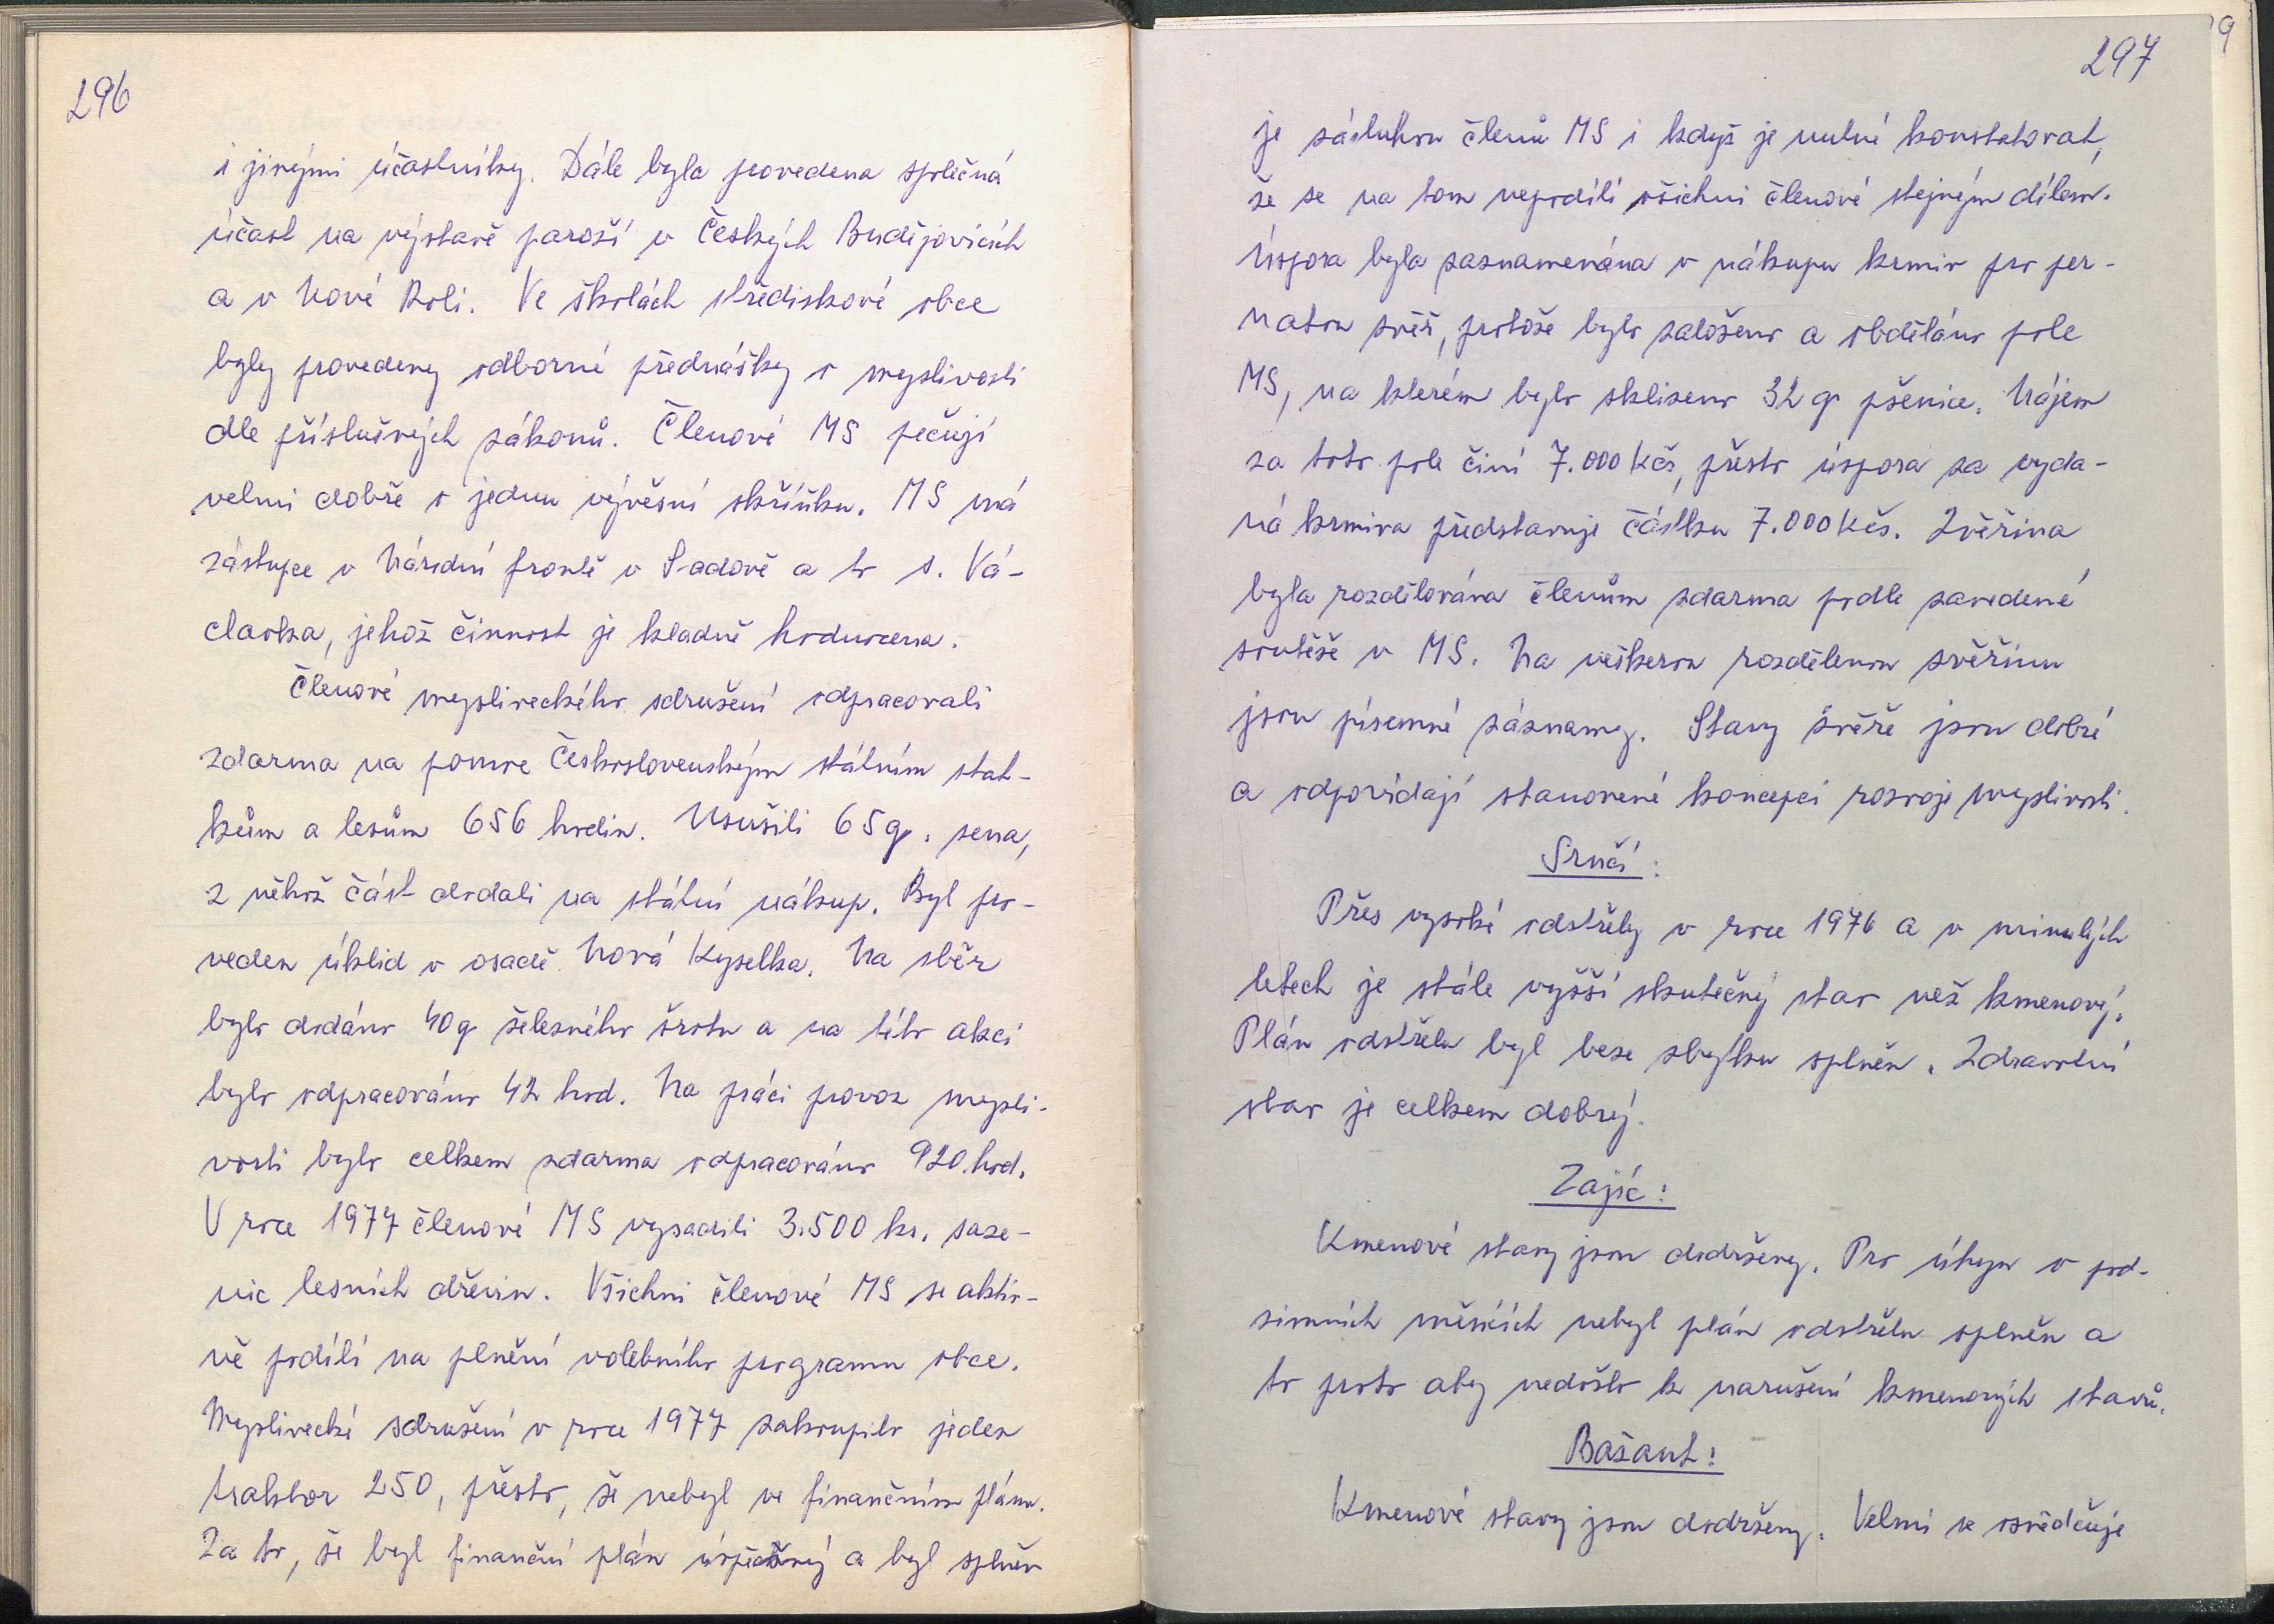 296
i jinými účastníky. Dále byla provedena společná
účast na výstavě paroží v Českých Budějovicích
a v Nové Roli. Ve školách střediskové obce
byly provedeny odborné přednášky o myslivosti
dle příslušných zákonů. Členové MS pečují
velmi dobře o jednu vývěsní skříňku. MS má
zástupce v Národní frontě v Sadově a to s. Vá-
clavka, jehož činnost je kladně hodnocena.
Členové mysliveckého sdružení odpracovali
zdarma na pomoc Československým státním stat-
kům a lesům 656 hodin. Usušili 65 q. sena,
z něhož část dodali na státní nákup. Byl pro-
veden úklid v osadě Nová Kyselka. Na sběr
bylo dodáno 40 q železného šrotu a na této akci
bylo odpracováno 42 hod. Na práci provoz mysli-
vosti bylo celkem zdarma odpracováno 920 hod.
V roce 1977 členové MS vysadili 3.500 ks. saze-
nic lesních dřevin. Všichni členové MS se aktiv-
ně podílí na plnění volebního programu obce.
Myslivecké sdružení v roce 1977 zakoupilo jeden
traktor 250, přesto, že nebyl ve finančním plánu.
Za to, že byl finanční plán úspěšný a byl splněn
297
je zásluhou členů MS i když je nutné konstatovat,
že se na tom nepodílí všichni členové stejným dílem.
Úspora byla zaznamenána v nákupu krmiv pro per-
natou zvěř, protože bylo založeno a obděláno pole
MS, na kterém bylo sklizeno 32 q pšenice. Nájem
za toto pole činí 7.000 Kčs, přesto úspora za vyda-
ná krmiva představuje částku 7.000 Kčs. Zvěřina
byla rozdělována členům zdarma podle zavedené
soutěže v MS. Na veškerou rozdělenou zvěřinu
jsou písemné záznamy. Stavy zvěře jsou dobré
a odpovídají stanovené koncepci rozvoje myslivosti.
Srnčí:
Přes vysoké odstřely v roce 1976 a v minulých
letech je stále vyšší skutečný stav než kmenový.
Plán odstřelu byl beze zbytku splněn. Zdravotní
stav je celkem dobrý.
Zajíc:
Kmenové stavy jsou dodrženy. Pro úhyn v pod-
zimních měsících nebyl plán odstřelu splněn a
to proto aby nedošlo k narušení kmenových stavů.
Bažant:
Kmenové stavy jsou dodrženy. Velmi se osvědčuje